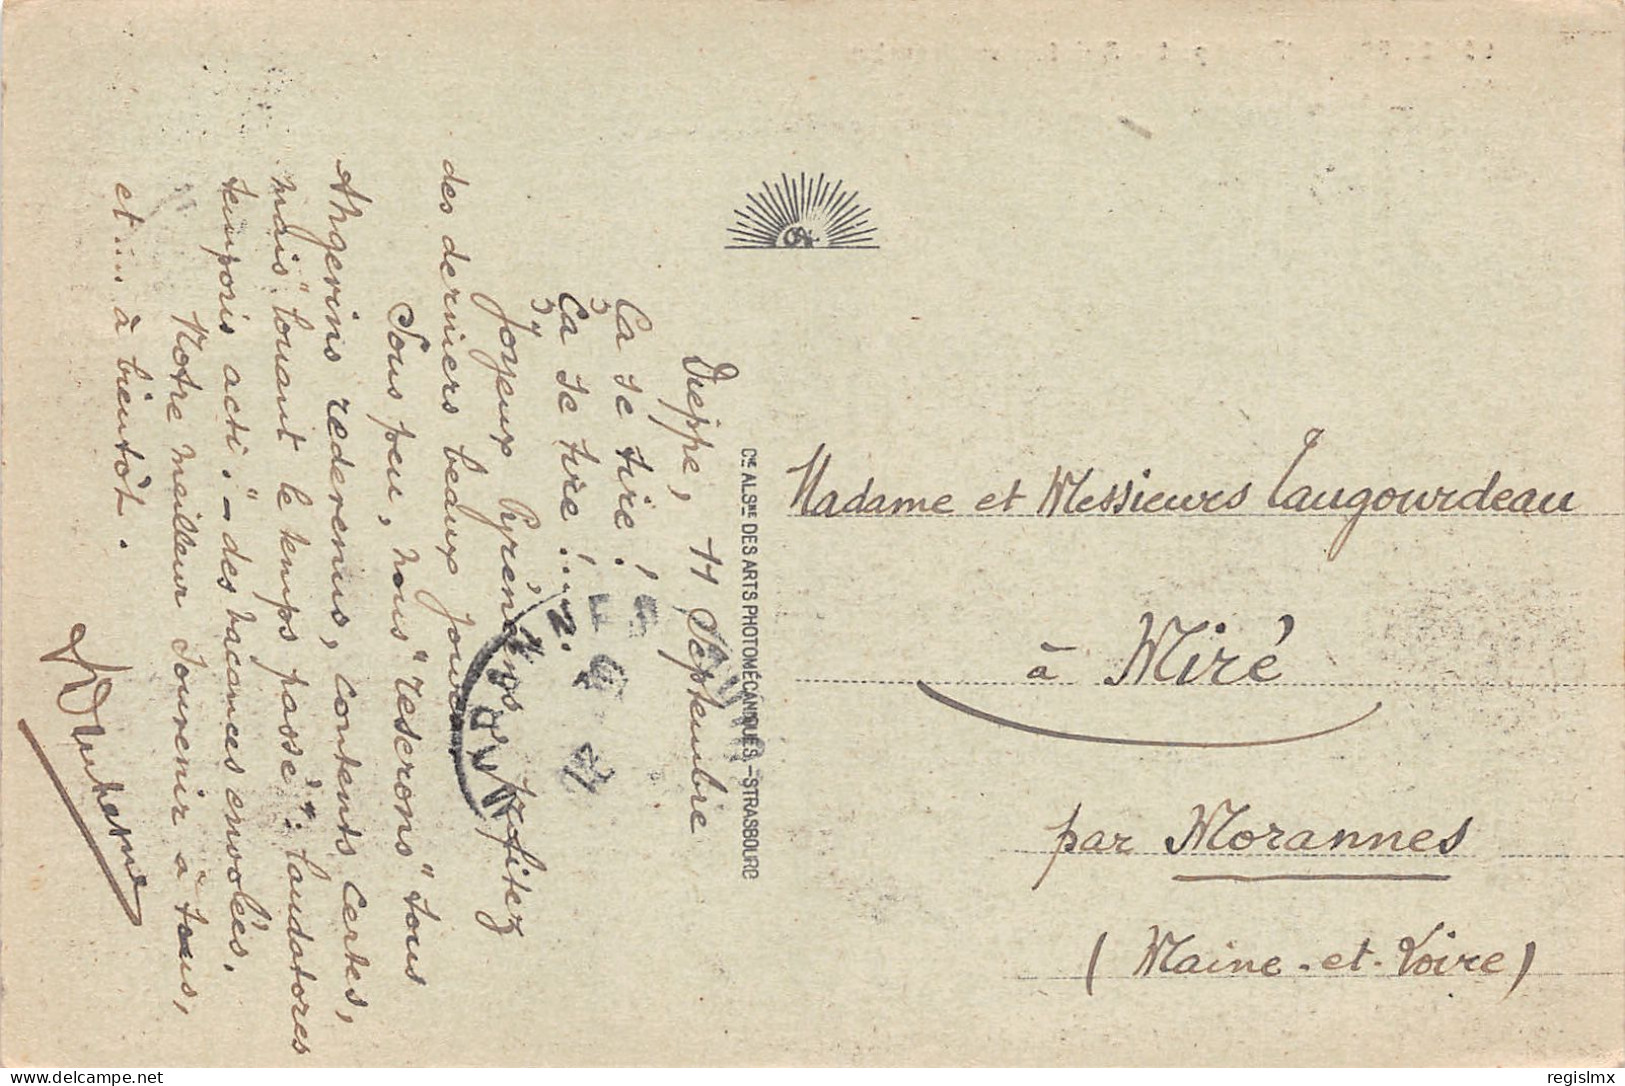 Dieppe, 11 Septembre
Ça se tire !
Ça se tire !...
Joyeux Pyrénéens, profitez
des derniers beaux jours.
Sous peu, nous "reserons" tous
Angevins redevenus, contents certes,
mais "louant le temps passé": laudatores
temporis acti." - des vacances envolées.
Notre meilleur souvenir à tous,
et.... à bientôt.
Cie ALSne DES ARTS PHOTOMÉCANIQUES.-STRASBOURG
Madame et Messieurs Laugourdeau
à Miré
par Morannes
(Maine-et-Loire)
delcampe.net
regislmx